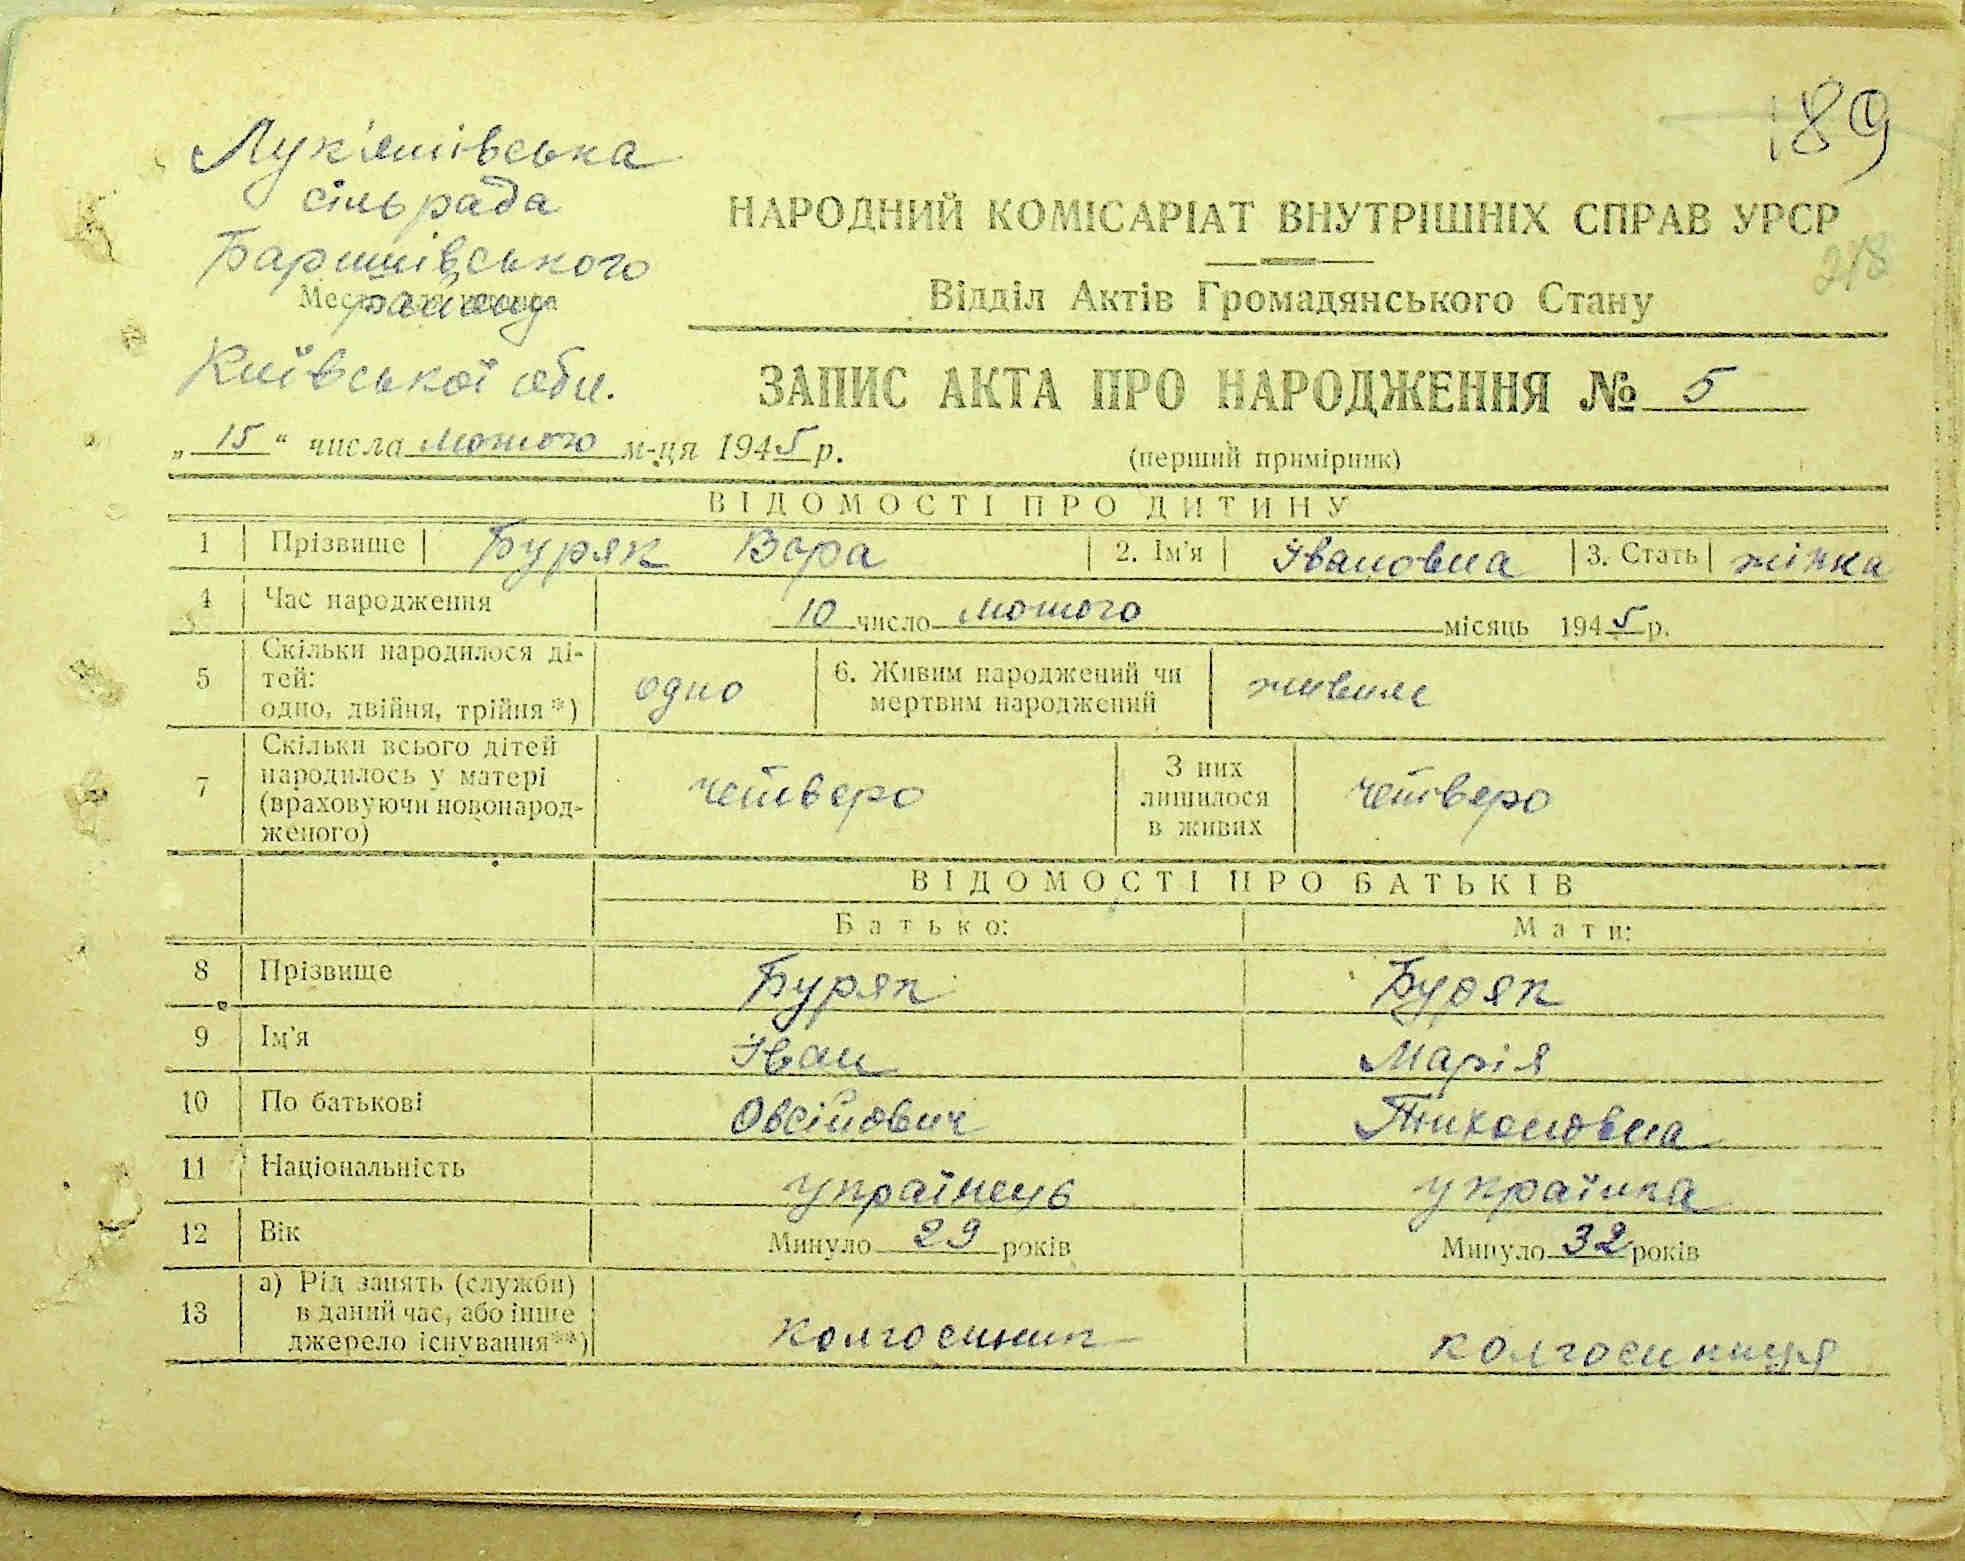 189
Лук'янівська
сільрада
Баришівського
району
Київської обл.
НАРОДНИЙ КОМІСАРІАТ ВНУТРІШНІХ СПРАВ УРСР
218
Відділ Актів Громадянського Стану
ЗАПИС АКТА ПРО НАРОДЖЕННЯ № 5
„15“ числа лютого м-ця 1945 р.
(перший примірник)
ВІДОМОСТІ ПРО ДИТИНУ
1 Прізвище Буряк Вера 2. Ім'я Івановна 3. Стать жінка
4 Час народження 10 число лютого місяць 1945 р.
5 Скільки народилося ді-
тей:
одно, двійня, трійня*) одно 6. Живим народжений чи
мертвим народжений живим
7 Скільки всього дітей
народилось у матері
(враховуючи новонарод-
женого) четверо З них
лишилося
в живих четверо
ВІДОМОСТІ ПРО БАТЬКІВ
Батько: Мати:
8 Прізвище Буряк Буряк
9 Ім'я Іван Марія
10 По батькові Овсійович Тихоновна
11 Національність українець українка
12 Вік Минуло 29 років Минуло 32 років
13 а) Рід занять (служби)
в даний час, або інше
джерело існування**) колгоспник колгоспниця